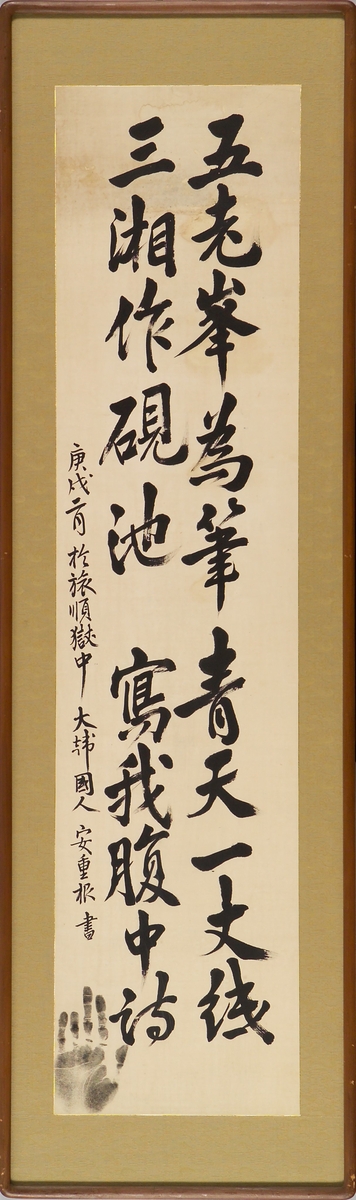 五老峯為筆 青天一丈紙
三湘作硯池 寫我腹中詩
庚戌二月 於旅順獄中 大韓國人 安重根 書